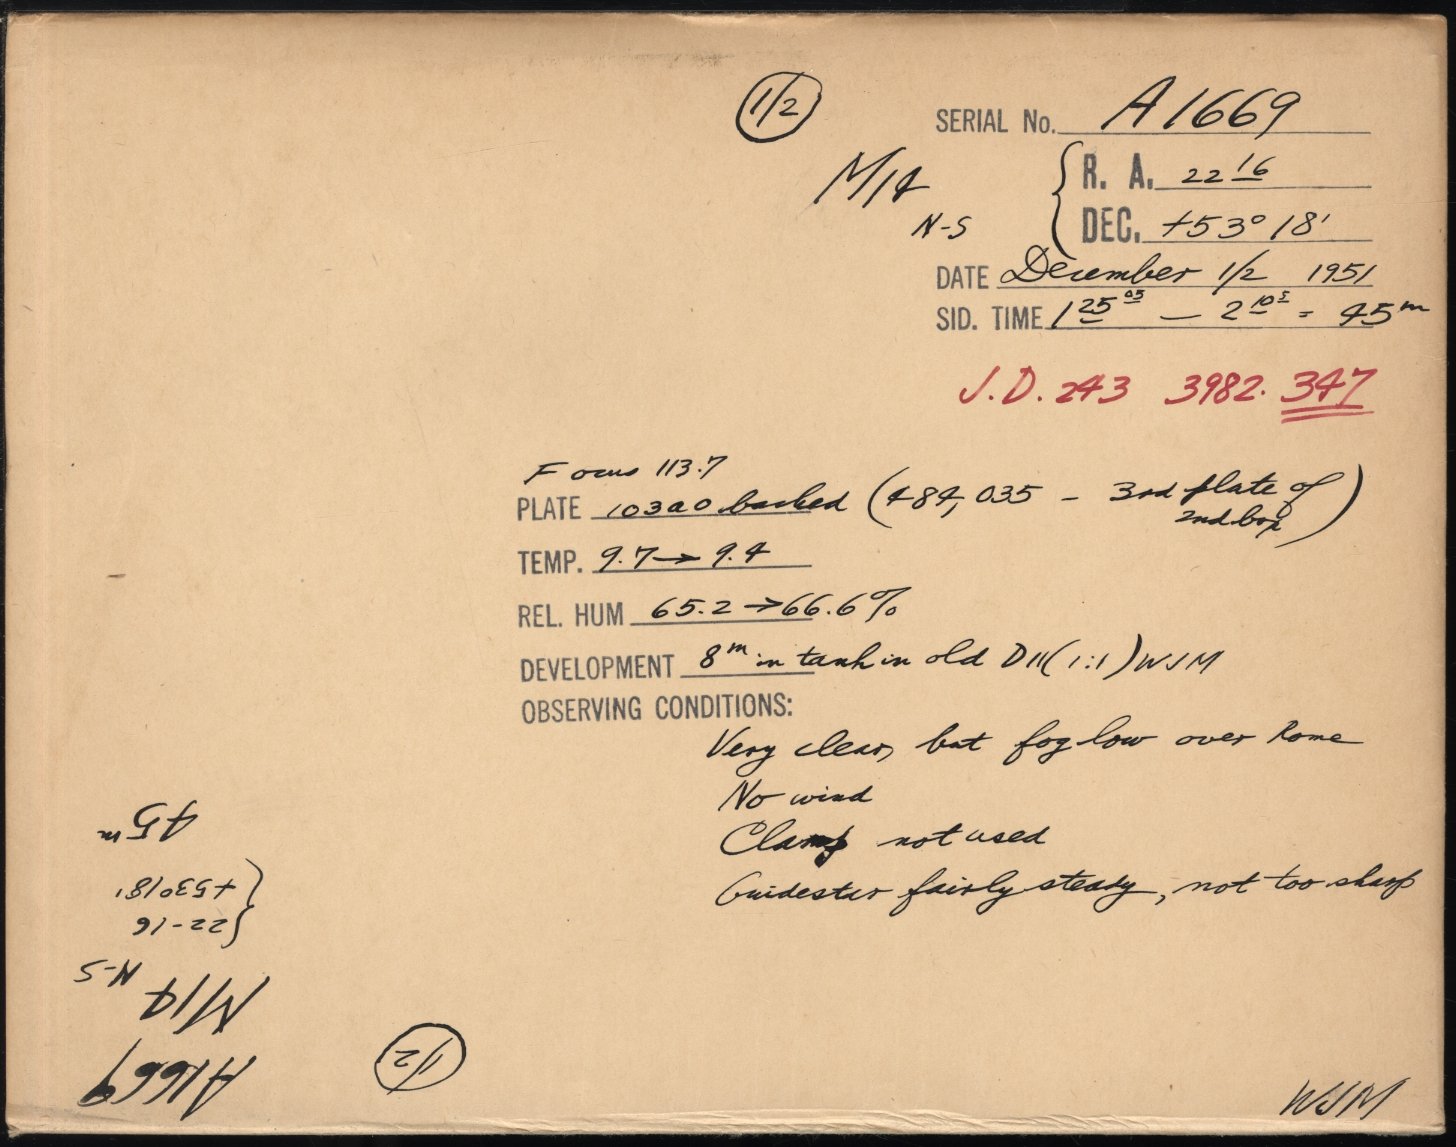 1/2
SERIAL No. A1669
M14 R. A. 22 16
N-S DEC. +53° 18'
DATE December 1/2 1951
SID. TIME 1 25 05 — 2 10 5 = 45m
J.D. 243 3982.347
Focus 113.7
PLATE 103aO backed (484,035 - 3rd plate of
2nd box)
TEMP. 9.7 → 9.4
REL. HUM 65.2 → 66.6%
DEVELOPMENT 8m in tank in old D11 (1:1) WJM
OBSERVING CONDITIONS:
Very clear, but fog low over Rome
No wind
Clamp not used
Guidestar fairly steady, not too sharp
WJM
1/2
A1669
M14 N-S
22-16
+53°18'
45m